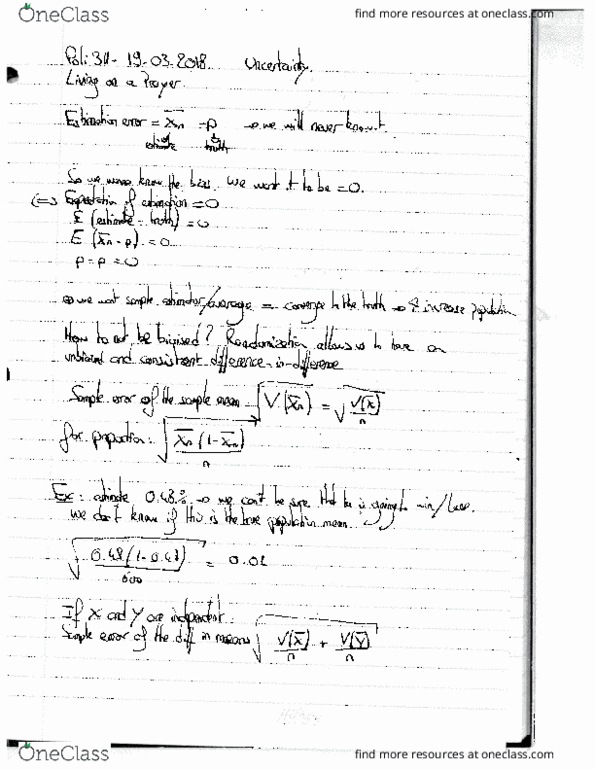 OneClass
find more resources at oneclass.com
Poli 311 - 19-03-2018 Uncertainty.
Living on a Prayer.
Estimation error = X̄n - p → we will never know it.
estimate truth
So we never know the bias. We want it to be = 0.
(=) Expectation of estimation = 0
E (estimate - truth) = 0
E (X̄n - p) = 0
p - p = 0
so we want sample estimator/average = converge to the truth → increase population
How to not be biaised? Randomization allows us to have an
unbiaised and consistent difference-in-difference
Sample error of the sample mean √V(X̄n) = √V(x)/n
for proportion: √X̄n(1-X̄n)/n
Ex: estimate 0.48% → we can't be sure that he is going to win/lose.
We don't know if this is the true population mean.
√0.48(1-0.48)/600 = 0.02
If X and Y are independent
Sample error of the diff in means √V(X)/n + V(Y)/n
OneClass
find more resources at oneclass.com